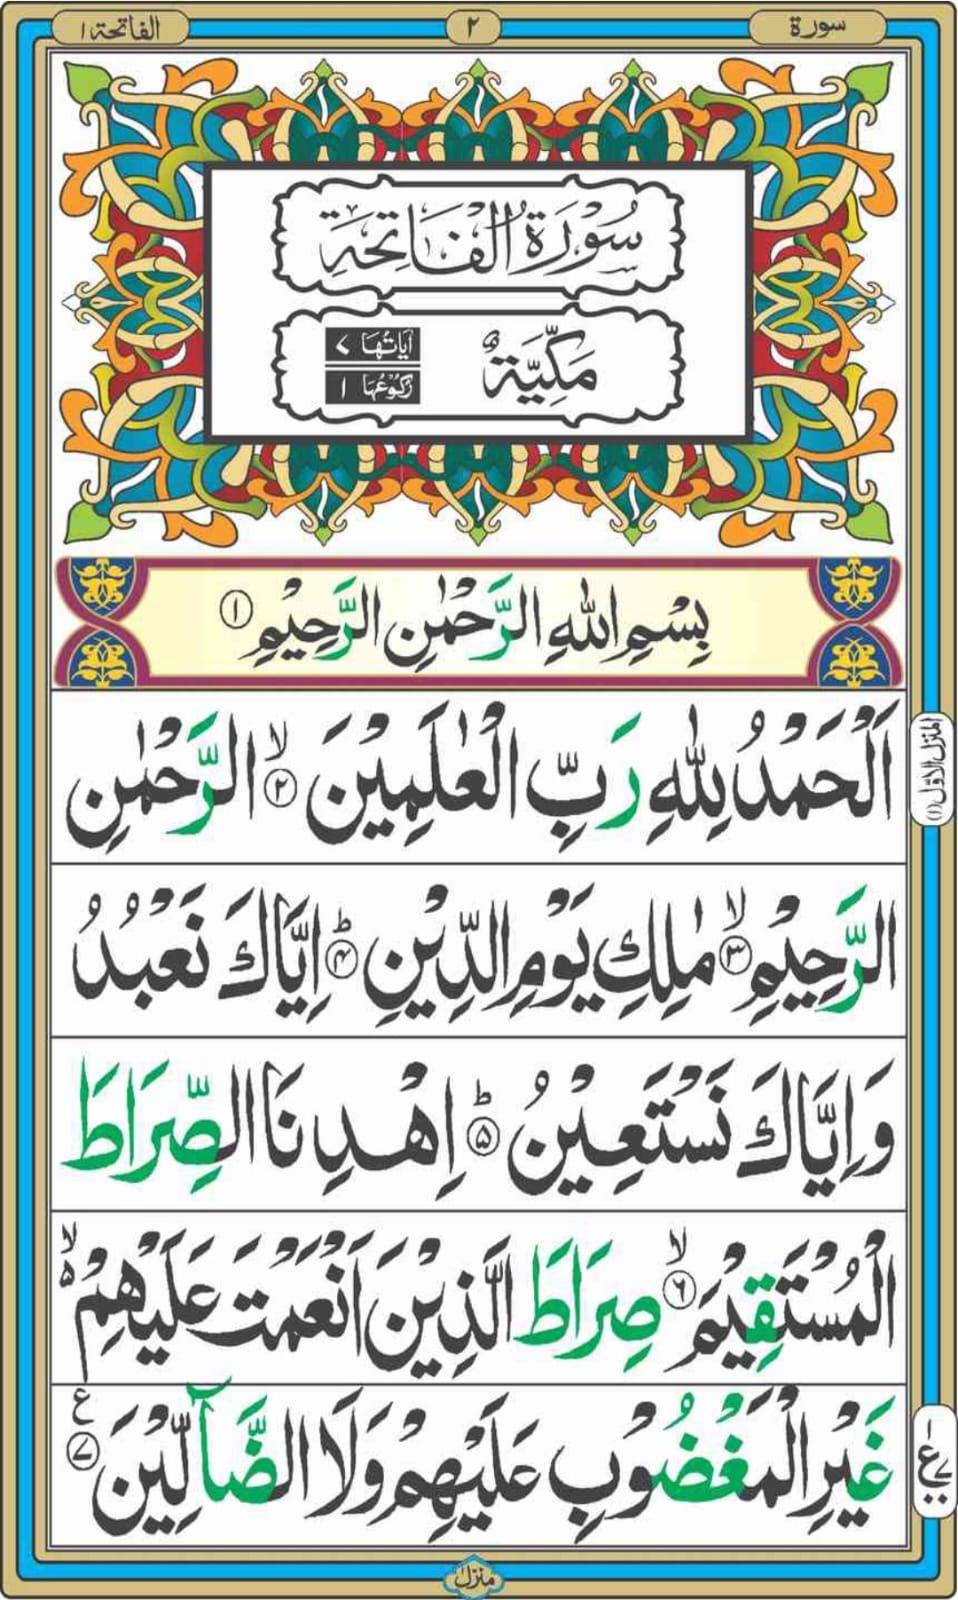 سورة
٢
الفاتحة ١
سُوْرَةُ الْفَاتِحَةِ
مَكِّيَّةٌ
اٰيَاتُهَا ٧
رُكُوْعُهَا ١
بِسْمِ اللّٰهِ الرَّحْمٰنِ الرَّحِيْمِ ١
اَلْحَمْدُ لِلّٰهِ رَبِّ الْعٰلَمِيْنَ ۙ ٢ الرَّحْمٰنِ
المنزل الاوّل (١)
الرَّحِيْمِ ۙ ٣ مٰلِكِ يَوْمِ الدِّيْنِ ؕ ۴ اِيَّاكَ نَعْبُدُ
وَاِيَّاكَ نَسْتَعِيْنُ ؕ ۵ اِهْدِنَا الصِّرَاطَ
الْمُسْتَقِيْمَ ۙ ۶ صِرَاطَ الَّذِيْنَ اَنْعَمْتَ عَلَيْهِمْ ۙ ۵
غَيْرِ الْمَغْضُوْبِ عَلَيْهِمْ وَلَا الضَّآلِّيْنَ ع ٧
منزل